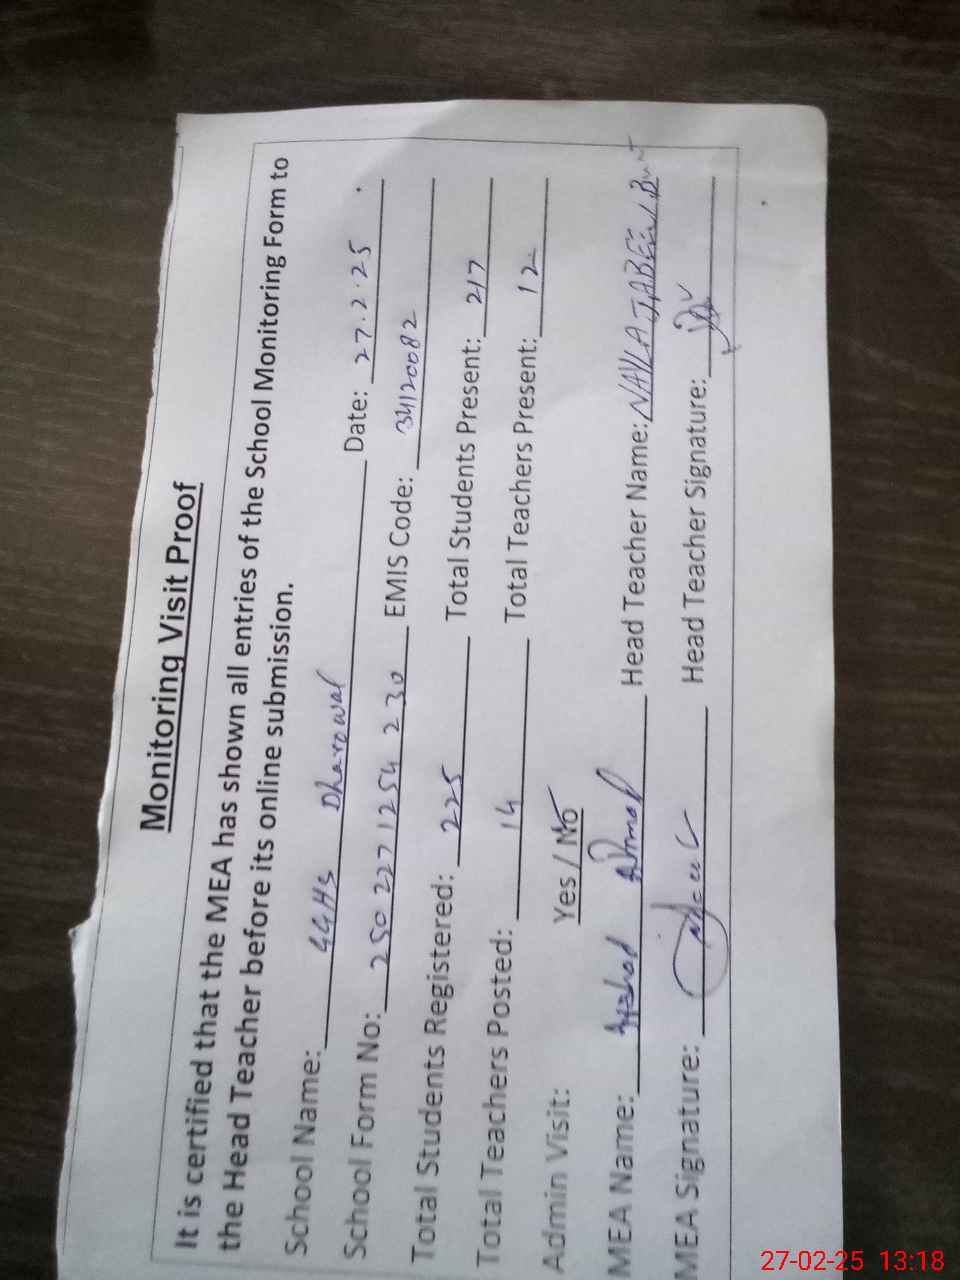 Monitoring Visit Proof
It is certified that the MEA has shown all entries of the School Monitoring Form to
the Head Teacher before its online submission.
School Name: GGHS Dharowal Date: 27.2.25
School Form No: 250 227 1254 230 EMIS Code: 34120082
Total Students Registered: 225 Total Students Present: 217
Total Teachers Posted: 14 Total Teachers Present: 12
Admin Visit: Yes / No
MEA Name: Arshad Head Teacher Name: NAYLA JABEEN Butt
MEA Signature: Head Teacher Signature:
27-02-25 13:18